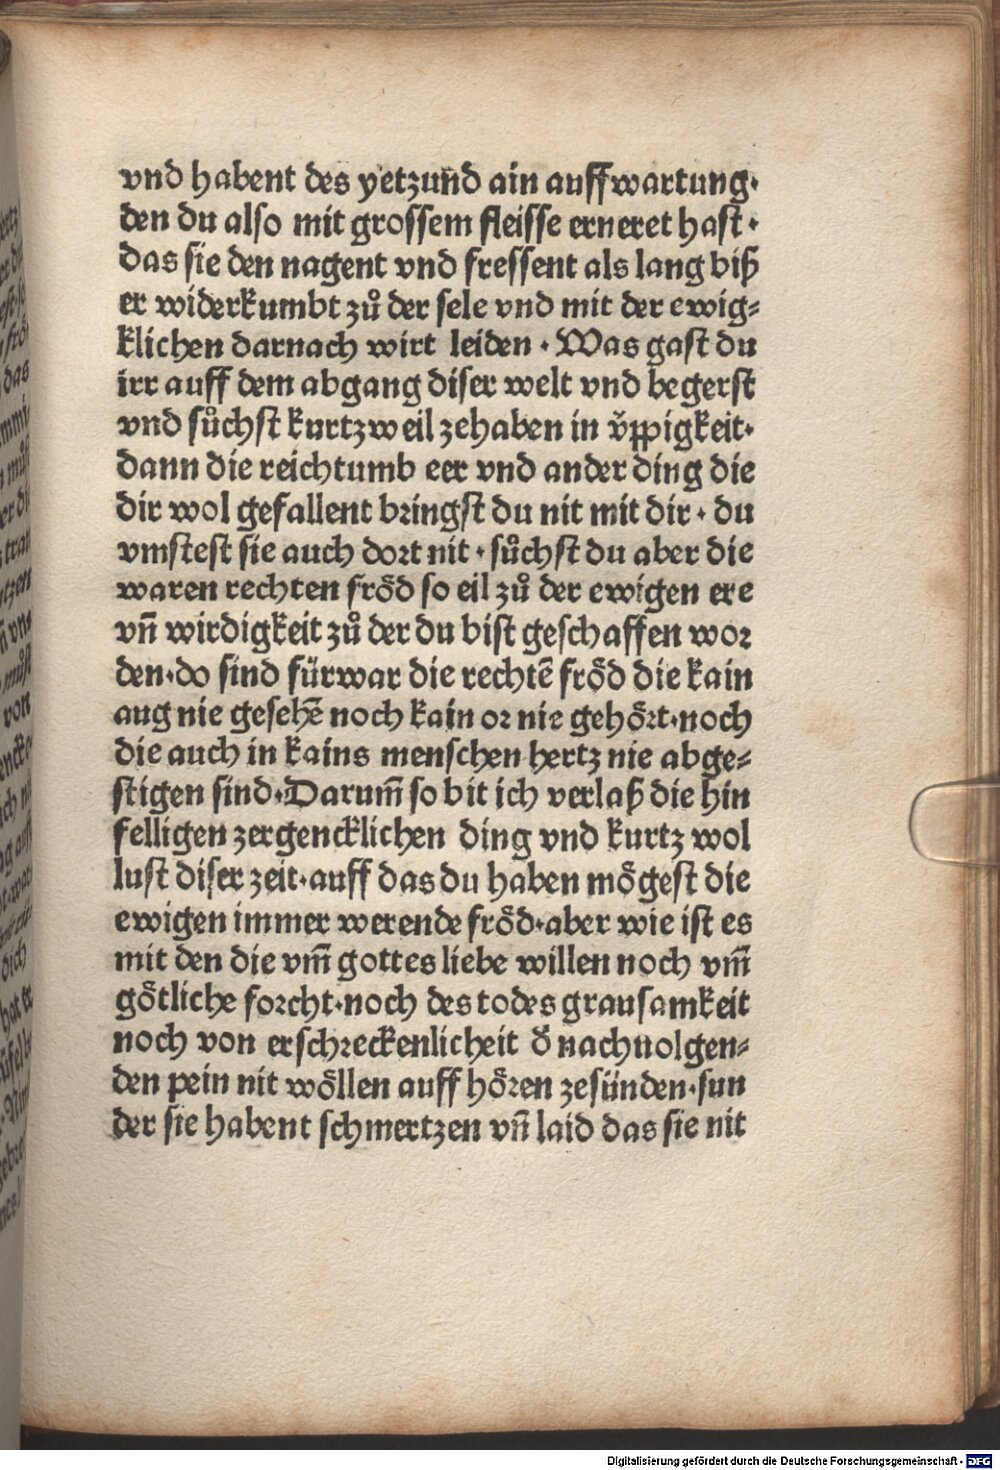 vnd habent des yetzund ain auffwartung·
den du also mit grossem fleisse erneret hast·
das sie den nagent vnd fressent als lang biß
er widerkumbt zuͦ der sele vnd mit der ewig⸗
klichen darnach wirt leiden · Was gast du
irr auff dem abgang diser welt vnd begerst
vnd suͦchst kurtzweil zehaben in v̈ppigkeit·
dann die reichtumb eer vnd ander ding die
dir wol gefallent bringst du nit mit dir · du
vmstest sie auch dort nit · suͦchst du aber die
waren rechten froͤd so eil zuͦ der ewigen ere
vn̄ wirdigkeit zuͦ der du bist geschaffen wor
den·do sind fürwar die rechtē froͤd die kain
aug nie gesehē noch kain or nie gehoͤrt·noch
die auch in kains menschen hertz nie abge⸗
stigen sind·Darum̄ so bit ich verlaß die hin
felligen zergencklichen ding vnd kurtz wol
lust diser zeit·auff das du haben moͤgest die
ewigen immer werende froͤd·aber wie ist es
mit den die vm̄ gottes liebe willen noch vm̄
goͤtliche forcht·noch des todes grausamkeit
noch von erschreckenlicheit d̄ nachuolgen⸗
den pein nit woͤllen auff hoͤren zesünden·sun
der sie habent schmertzen vn̄ laid das sie nit
Digitalisierung gefördert durch die Deutsche Forschungsgemeinschaft - DFG